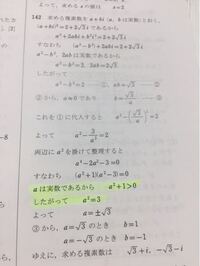 よって，求める の値は a=2
142 求める複素数を a+bi (a, b は実数) とおく。
(a+bi)²=2+2√3 i であるから
a²+2abi+b²i²=2+2√3 i
すなわち (a²-b²)+2abi=2+2√3 i
a²-b²=2, 2ab=2√3
したがって a²-b²=2 …… ①, ab=√3 …… ②
②から, a≠0 であり b=√3/a …… ③
これを①に代入すると a²-(√3/a)²=2
よって a²-3/a²=2
両辺に a² を掛けて整理すると
a⁴-2a²-3=0
すなわち (a²+1)(a²-3)=0
a は実数であるから a²+1>0
したがって a²=3
よって a=±√3
③から, a=√3 のとき b=1
a=-√3 のとき b=-1
ゆえに, 求める複素数は √3+i, -√3-i